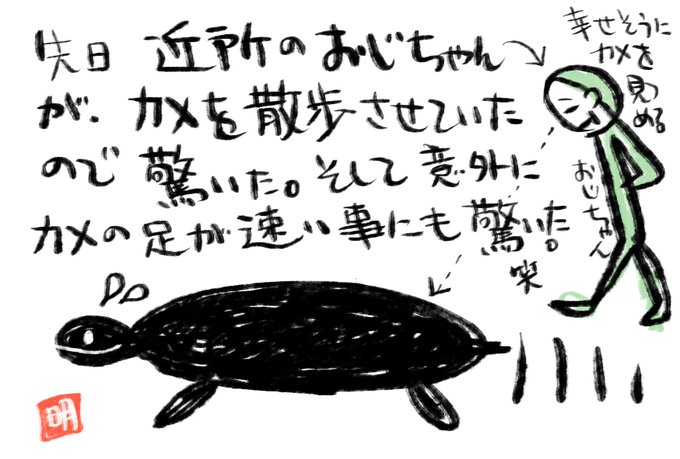 先日 近所のおじちゃん
が、カメを散歩させていた
ので驚いた。そして意外に
カメの足が速い事にも驚いた。
笑
幸せそうに
カメを
見つめる
おじちゃん
明